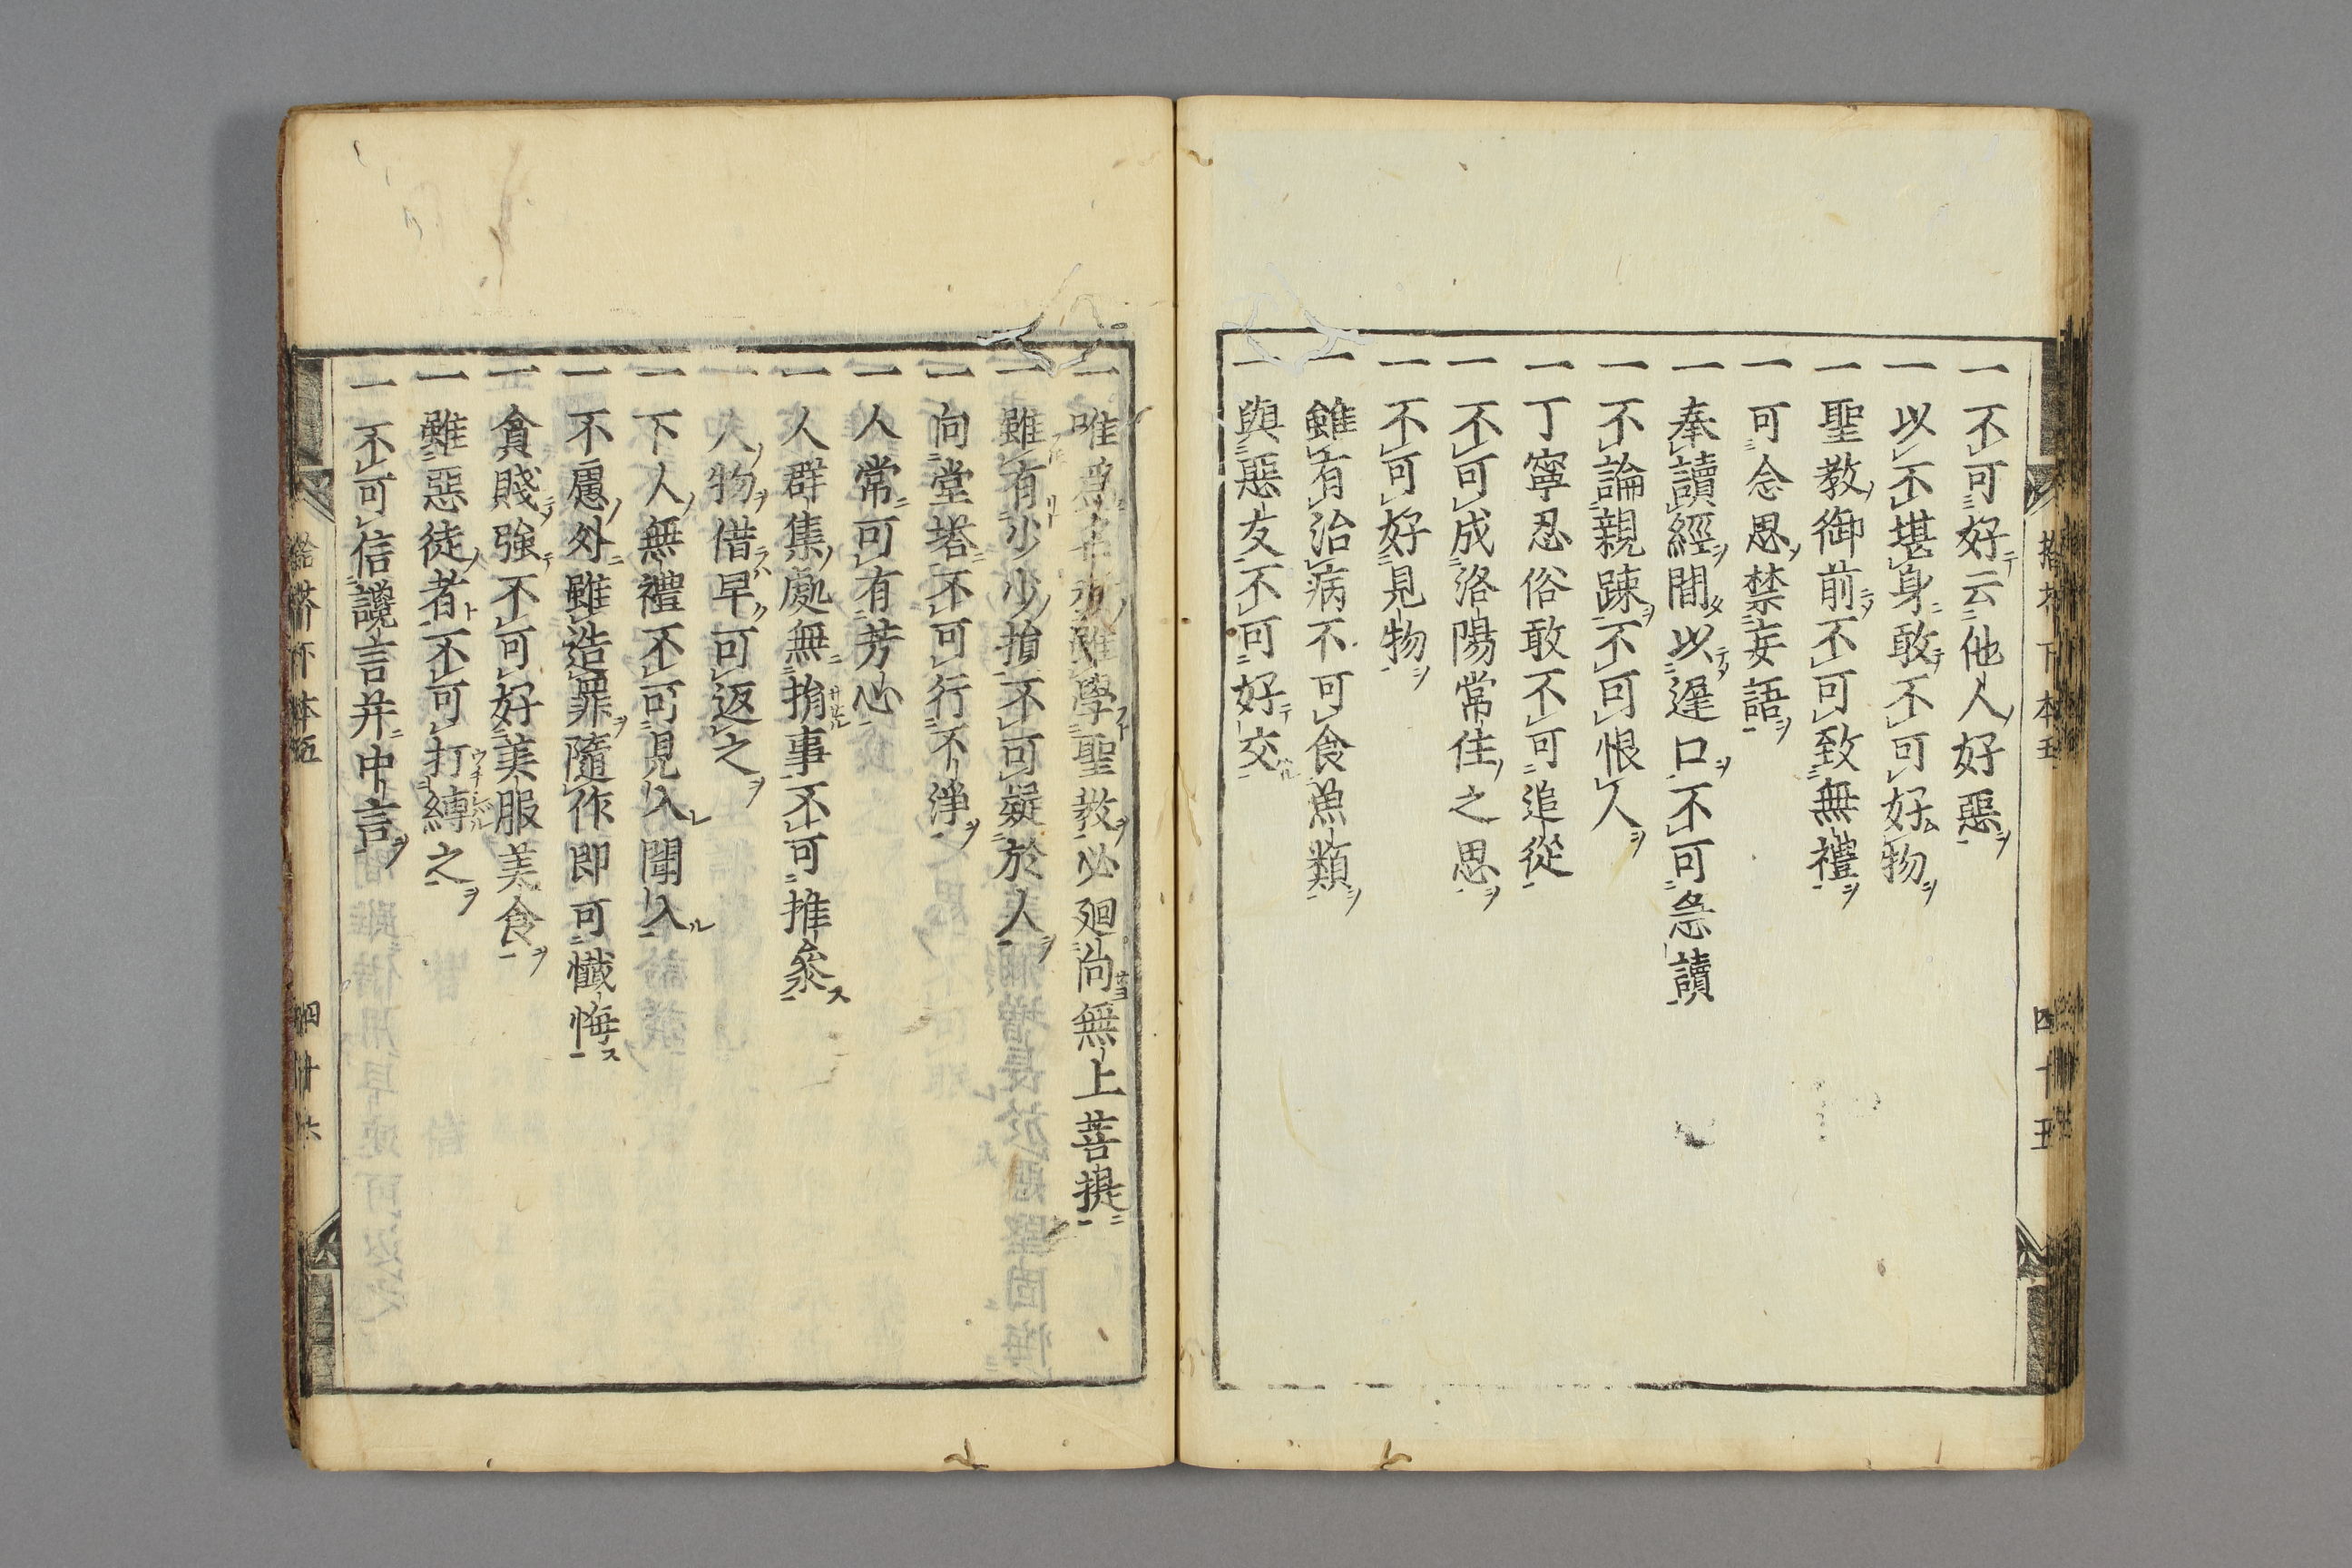 一不可好云他人好惡
一以不堪身敢不可好物
一聖教御前不可致無禮
一可念思禁妄語
一奉讀經間以遑口不可怱讀
一不論親踈不可恨人
一丁寧忍俗敢不可追從
一不可成洛陽常住之思
一不可好見物
一雖有治病不可食魚類
一與惡友不可好交
一唯爲雖學聖教必廻向無上菩提
一雖有少少損不可疑於人
一向堂塔不可行不淨
一人常可有芳心
一人群集處無指事不可推參
一人物借早可返之
一下人無禮不可見入聞入
一不慮外雖造罪隨作即可懺悔
一貧賤強不可好美服美食
一雖惡徒者不可打縛之
一不可信讒言并中言